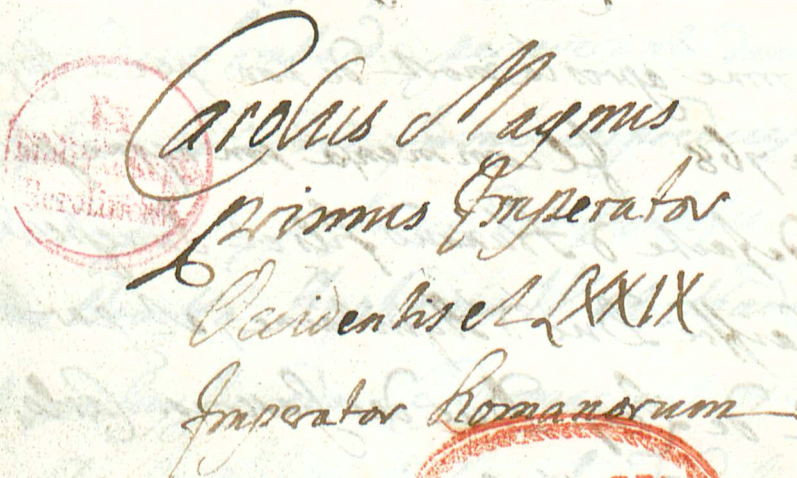 Carolus Magnus
primus Imperator
Occidentis et LXXIX
Imperator Romanorum